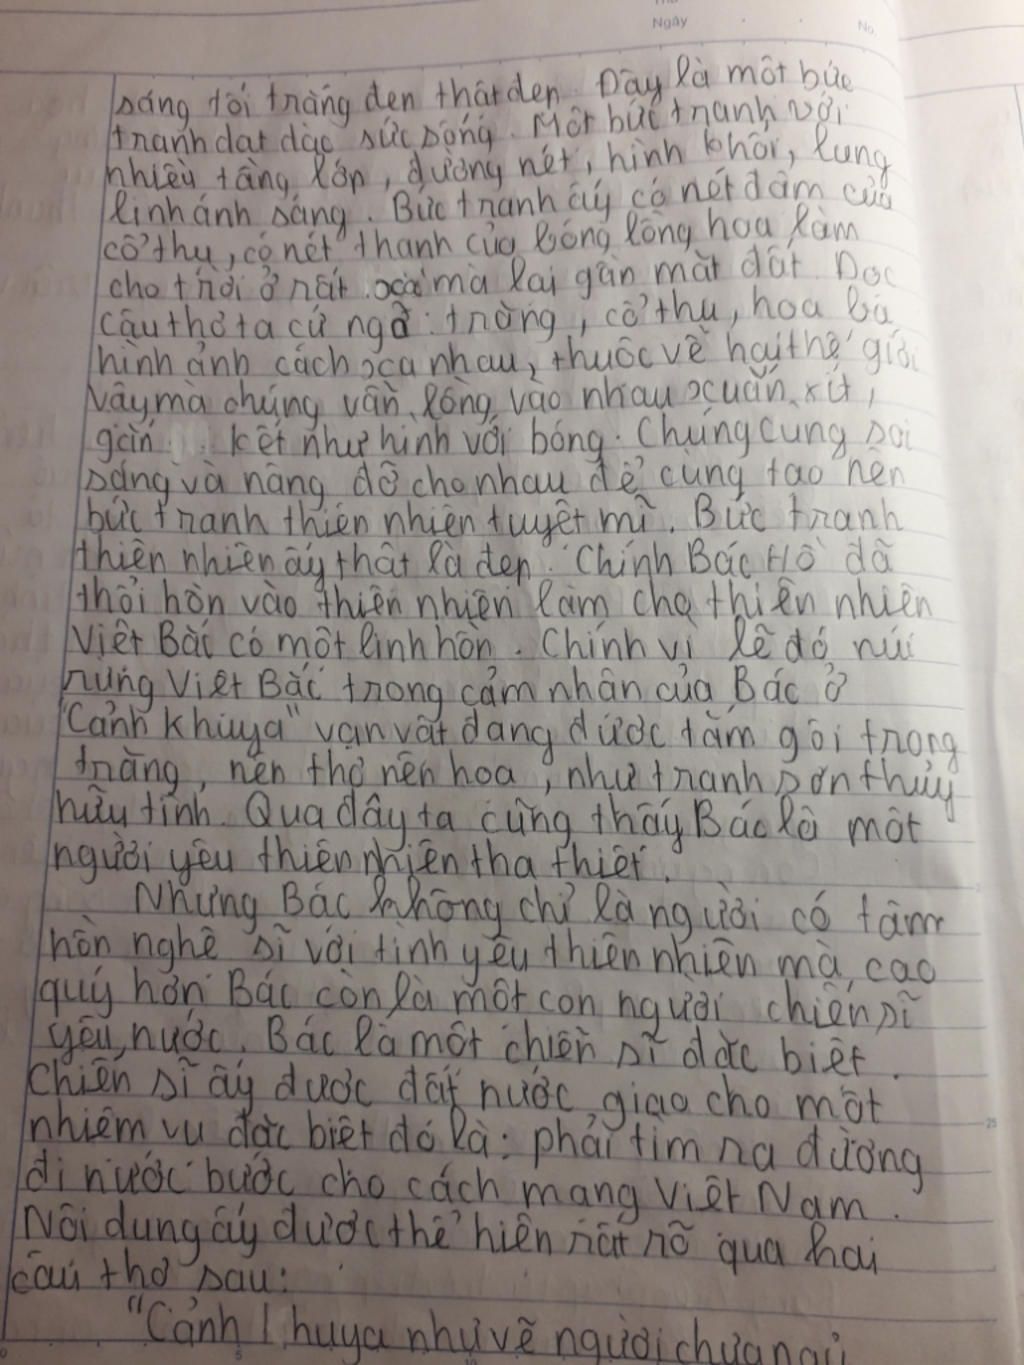 Ngày No.
sáng tối trăng đen thật đẹp. Đây là một bức
tranh dạt dào sức sống. Một bức tranh với
nhiều tầng lớp, đường nét, hình khối, lung
linh ánh sáng. Bức tranh ấy có nét đậm của
cổ thụ, có nét thanh của bóng lồng hoa làm
cho trời ở rất xa mà lại gần mặt đất. Đọc
câu thơ ta cứ ngỡ: trăng, cổ thụ, hoa là
hình ảnh cách xa nhau, thuộc về hai thế giới
vậy mà chúng vẫn lồng vào nhau xuấn xít,
gắn kết như hình với bóng. Chúng cùng soi
sáng và nâng đỡ cho nhau để cùng tạo nên
bức tranh thiên nhiên tuyệt mĩ. Bức tranh
thiên nhiên ấy thật là đẹp. Chính Bác Hồ đã
thổi hồn vào thiên nhiên làm cho thiên nhiên
Việt Bắc có một linh hồn. Chính vì lẽ đó núi
rừng Việt Bắc trong cảm nhận của Bác ở
"Cảnh khuya" vạn vật đang được tắm gội trong
trăng, nên thơ nên hoa, như tranh sơn thủy
hữu tình. Qua đây ta cũng thấy Bác là một
người yêu thiên nhiên tha thiết.
Nhưng Bác không chỉ là người có tâm
hồn nghệ sĩ với tình yêu thiên nhiên mà cao
quý hơn Bác còn là một con người chiến sĩ
yêu nước. Bác là một chiến sĩ đặc biệt.
Chiến sĩ ấy được đất nước giao cho một
nhiệm vụ đặc biệt đó là: phải tìm ra đường
đi nước bước cho cách mạng Việt Nam.
Nội dung ấy được thể hiện rất rõ qua hai
câu thơ sau:
"Cảnh khuya như vẽ người chưa ngủ